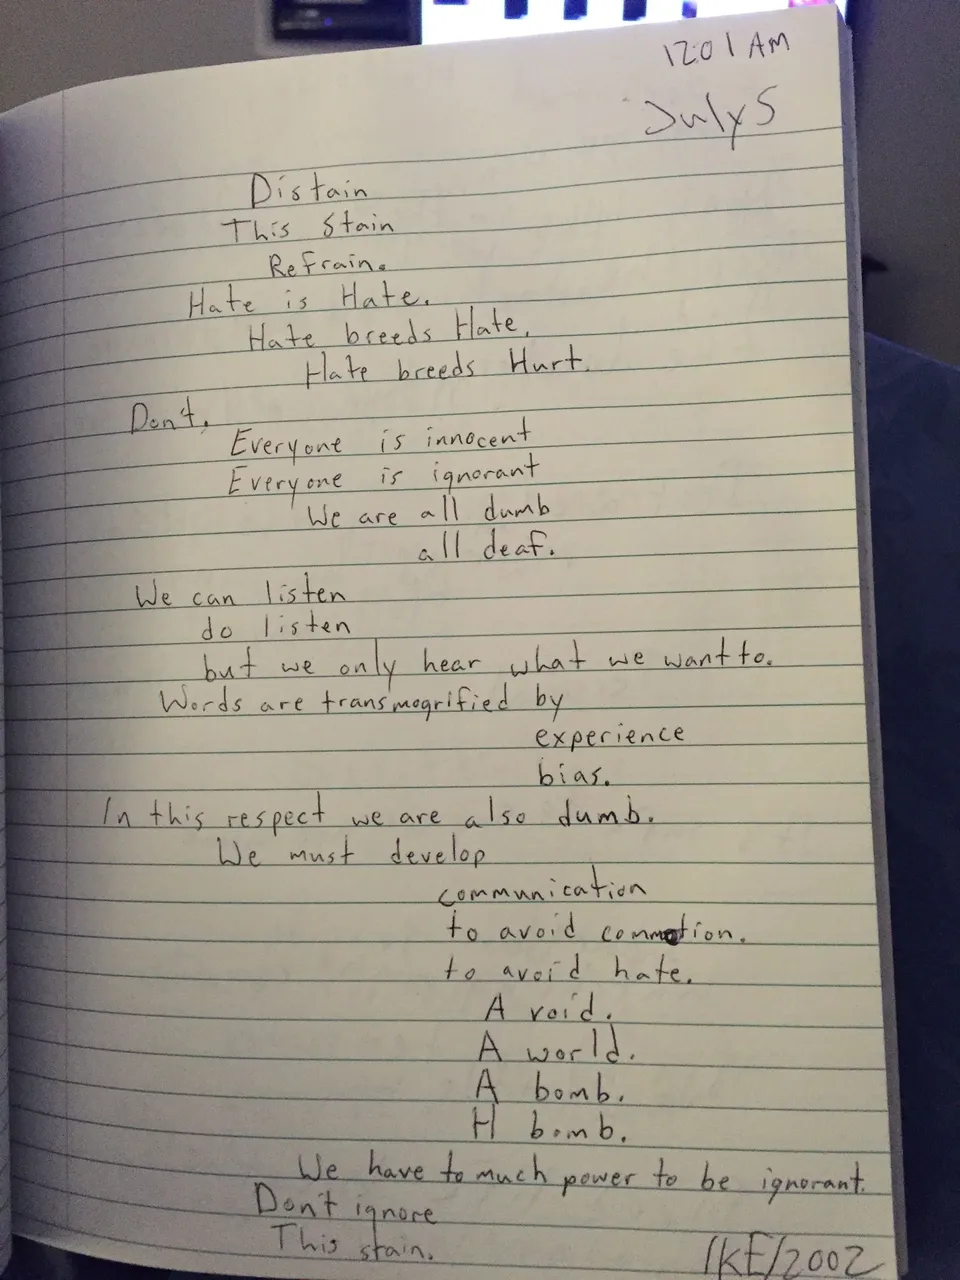 1201 AM
July 5
Distain
This Stain
Refrain.
Hate is Hate.
Hate breeds Hate.
Hate breeds Hurt.
Don't.
Everyone is innocent
Everyone is ignorant
We are all dumb
all deaf.
We can listen
do listen
but we only hear what we want to.
Words are transmogrified by
experience
bias.
In this respect we are also dumb.
We must develop
communication
to avoid commotion.
to avoid hate.
A void.
A world.
A bomb.
H bomb.
We have to much power to be ignorant.
Don't ignore
This stain.
IKE/2002